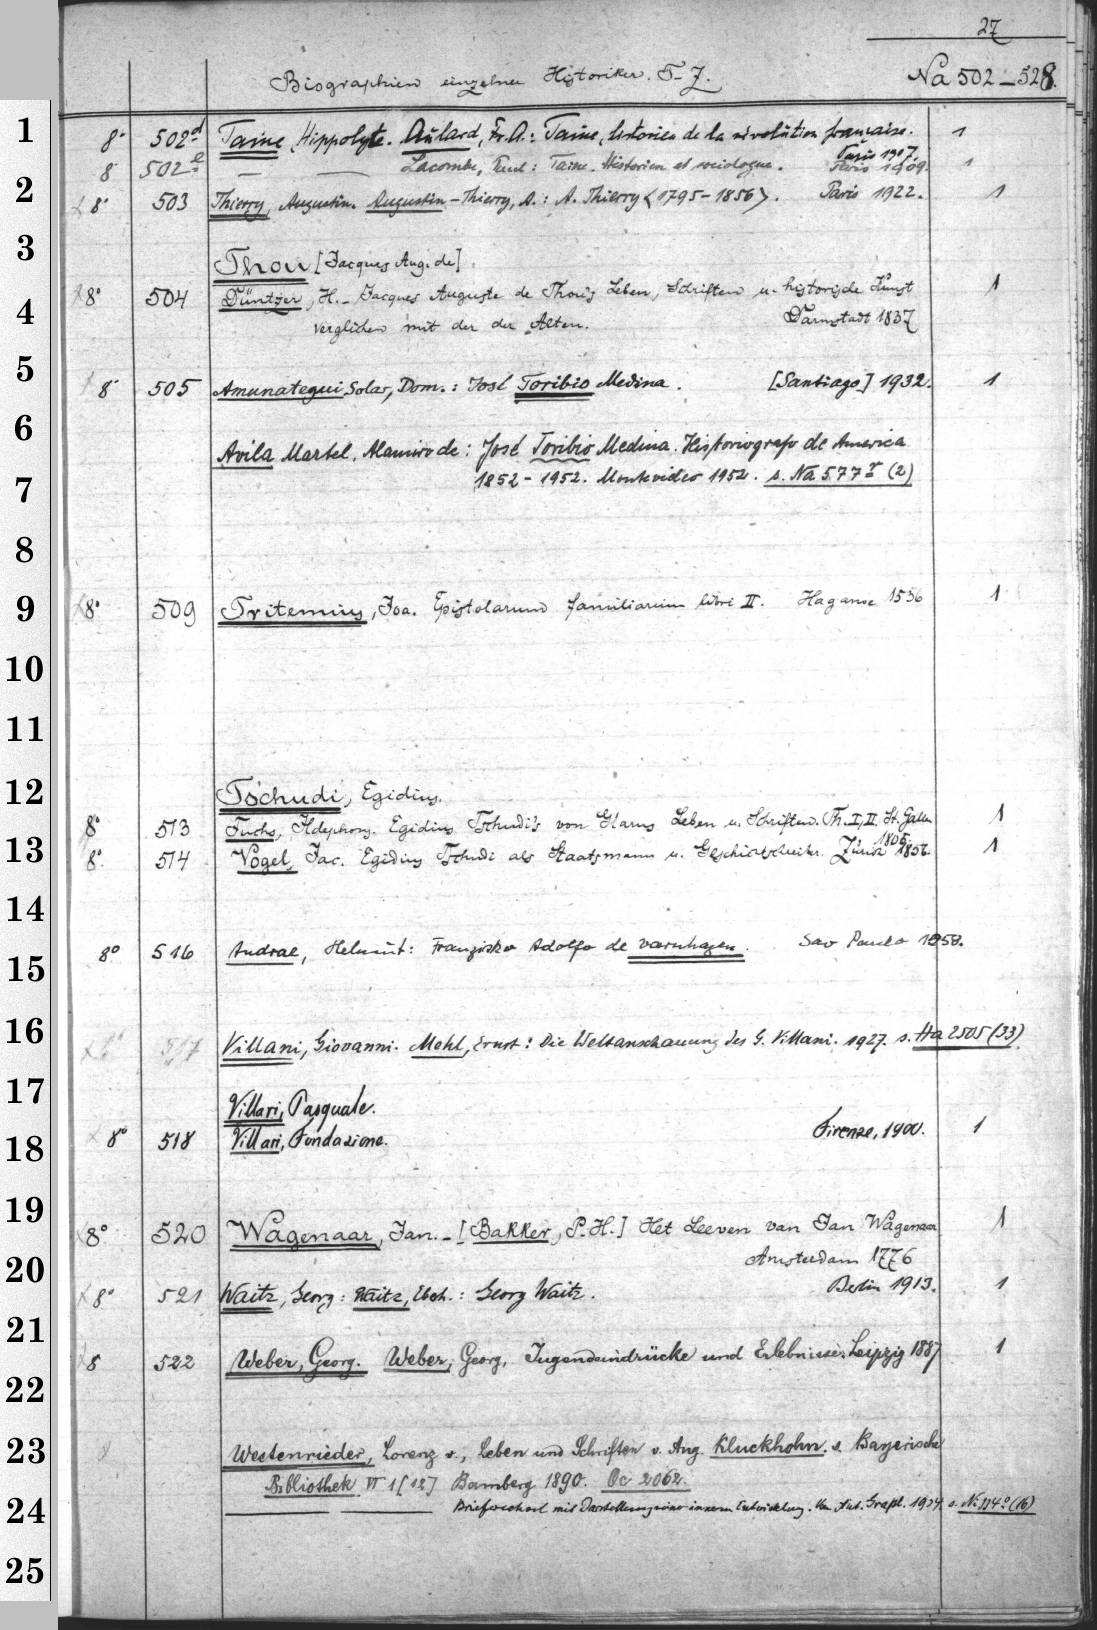 27
Biographien einzelner Historiker. T-Z. Na 502-528.
1
8° 502d Taine, Hippolyte. Aulard, Fr. A.: Taine, historien de la révolution française. Paris 1907. 1
8° 502e — — Lacombe, Paul: Taine. Historien et sociologue. Paris 1909. 1
2
8° 503 Thierry, Augustin. Augustin-Thierry, A.: A. Thierry <1795-1856>. Paris 1922. 1
3
Thou [Jacques Aug. de]
8° 504 Düntzer, H. - Jacques Auguste de Thou's Leben, Schriften u. historische Kunst 1
4
verglichen mit der der Alten. Darmstadt 1837
5
8° 505 Amunategui Solar, Dom.: José Toribio Medina. [Santiago] 1932. 1
6
Avila Martel, Alamiro de: José Toribio Medina. Historiografo de America
7
1852-1952. Montevideo 1952. s. Na 577r (2)
8
9
8° 509 Tritemius, Joa. Epistolarum familiarium libri II. Haganoe 1536 1
10
11
12
Tschudi, Egidius.
8° 513 Fuchs, Ildephons. Egidius Tschudi's von Glarus Leben u. Schriften. Th. I, II. St. Gallen 1805. 1
13
8° 514 Vogel, Jac. Egidius Tschudi als Staatsmann u. Geschichtschreiber. Zürich 1856. 1
14
8° 516 Andrae, Helmut: Franzisko Adolfo de Varnhagen. Sao Paulo 1958.
15
16
8° 517 Villani, Giovanni. Mehl, Ernst: Die Weltanschauung des G. Villani. 1927. s. Ha 2505 (33)
17
Villari, Pasquale.
18
8° 518 Villari, Fondazione. Firenze, 1900. 1
19
8° 520 Wagenaar, Jan. - [Bakker, P. H.] Het Leeven van Jan Wagenaar 1
20
Amsterdam 1776
8° 521 Waitz, Georg: Waitz, Ebeh.: Georg Waitz. Berlin 1913. 1
21
8° 522 Weber, Georg. Weber, Georg, Jugendeindrücke und Erlebnisse. Leipzig 1887 1
22
23
Westenrieder, Lorenz v., Leben und Schriften v. Aug. Kluckhohn. s. Bayerische
Bibliothek VI 1 [12] Bamberg 1890. Oc 2062.
24
— — Briefwechsel mit Darstellung seiner inneren Entwicklung. Von Ant. Graßl. 1934. s. (16)
25